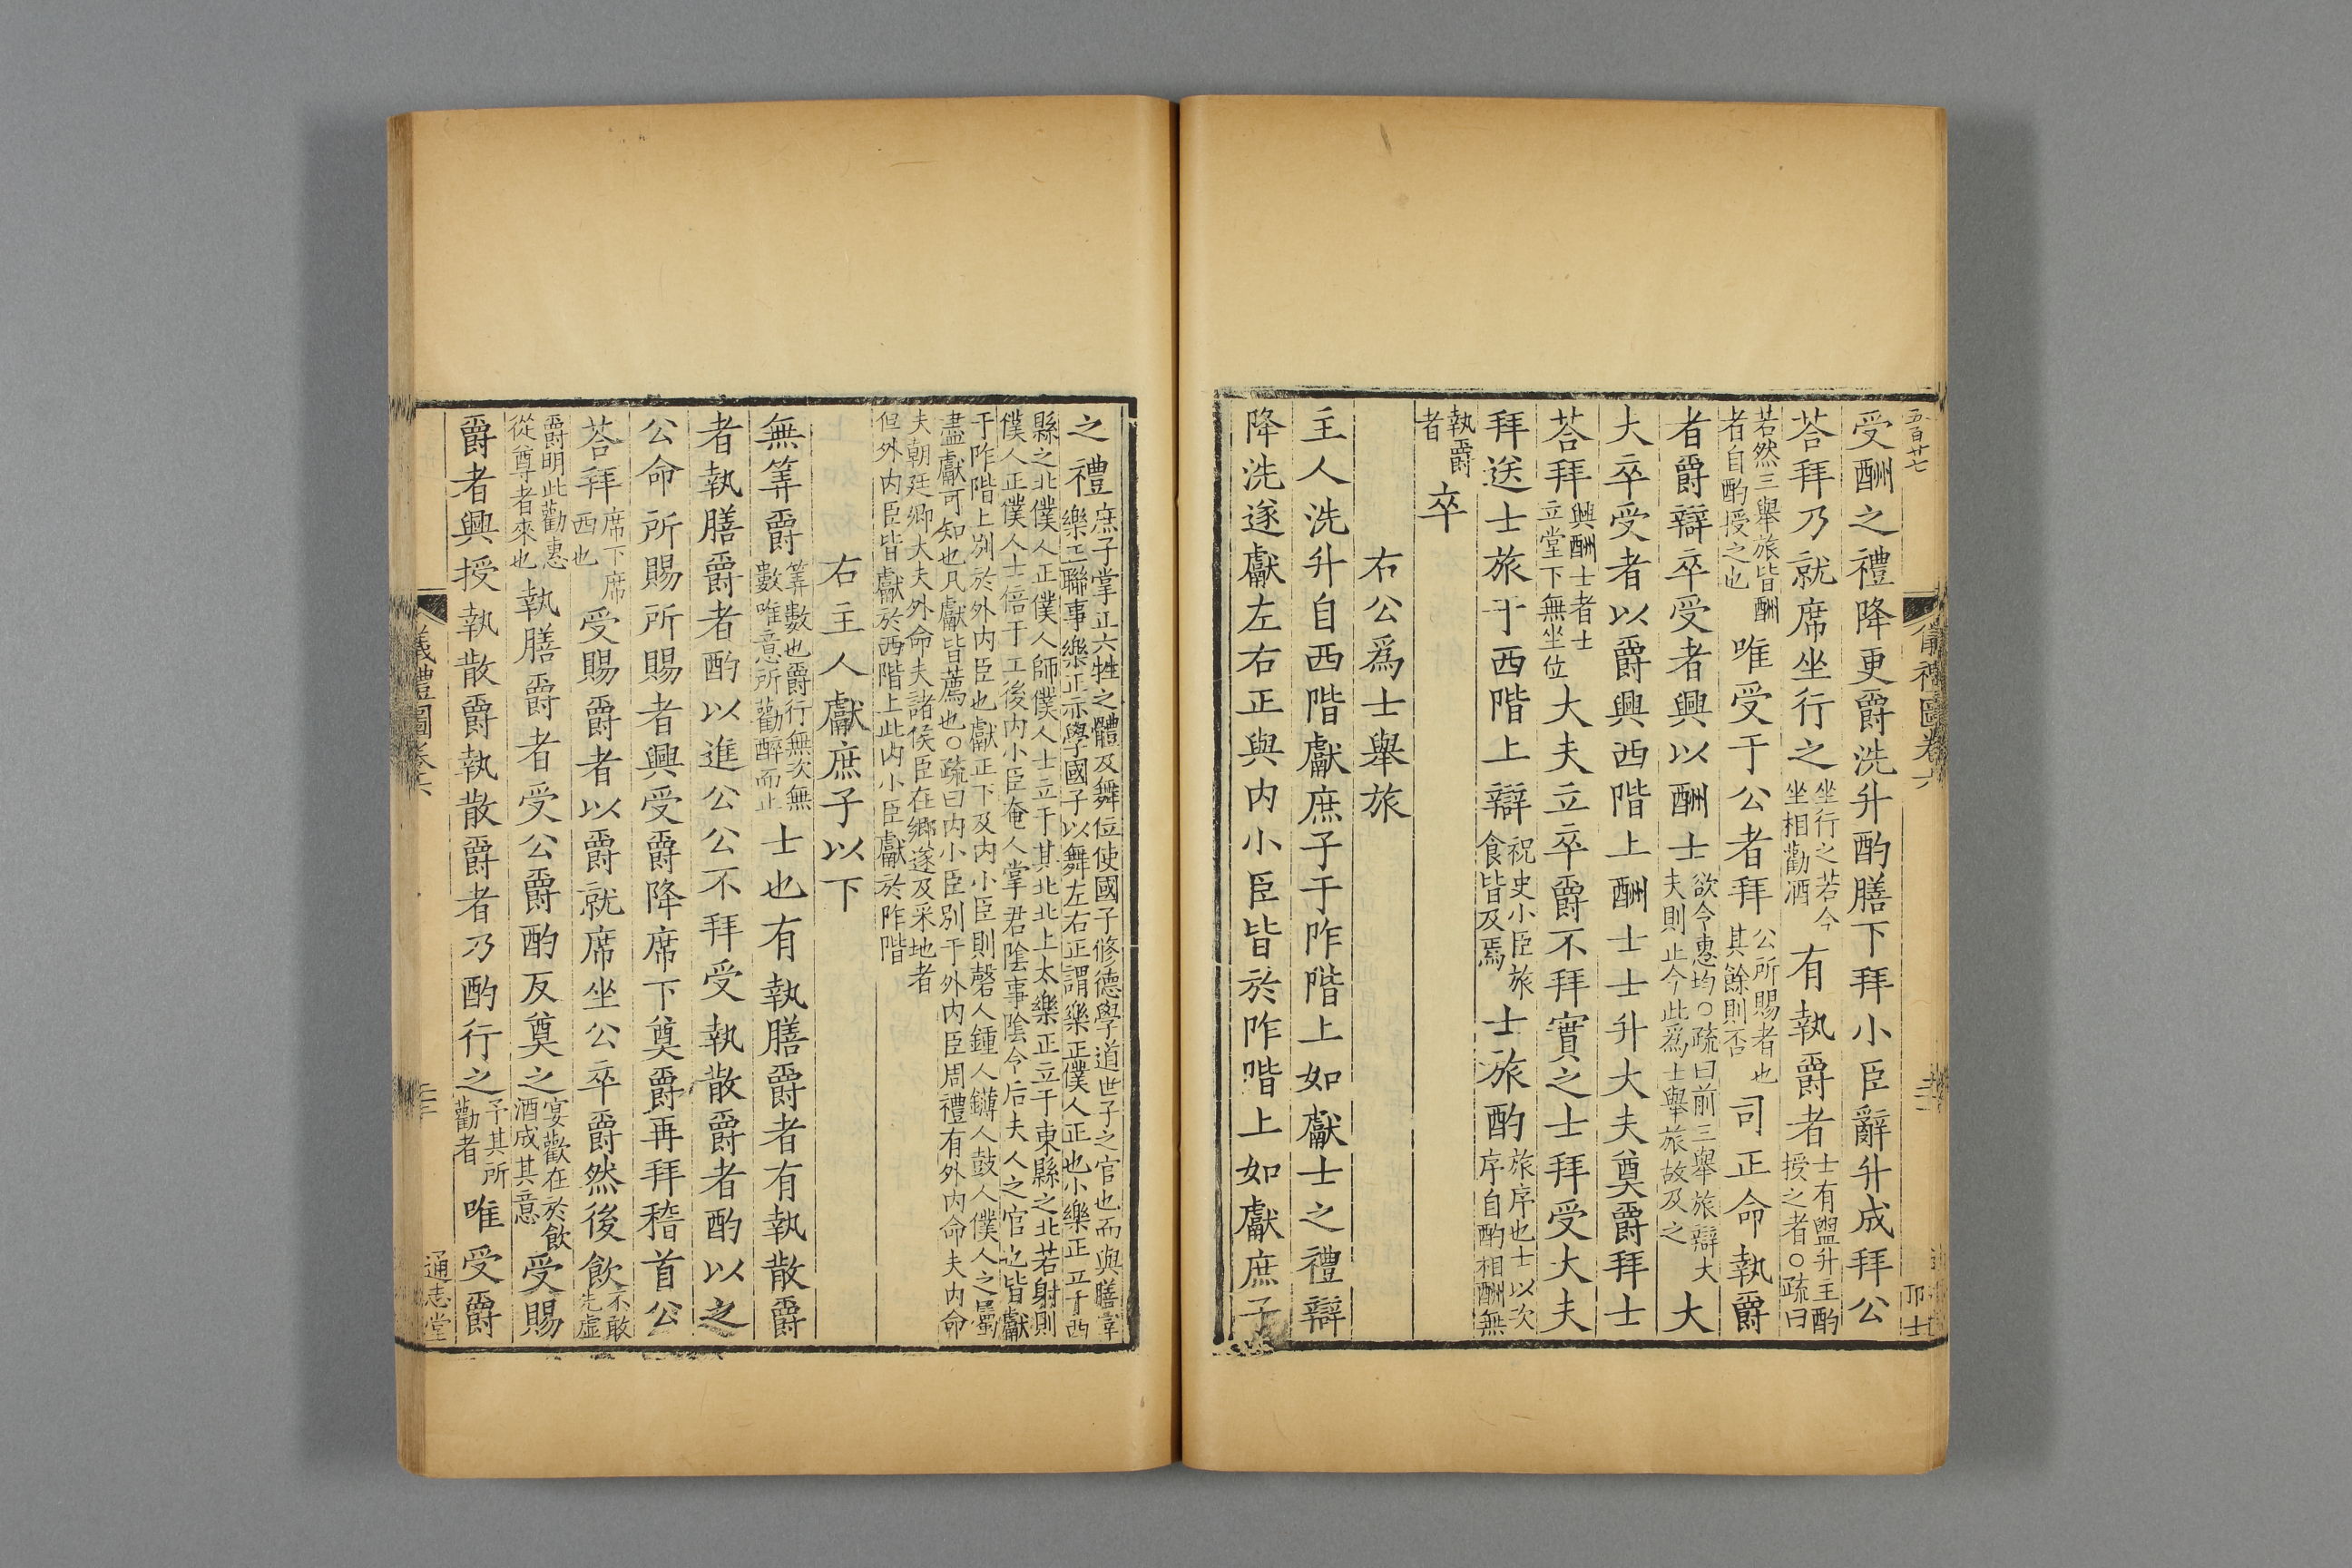 五百廿七
儀禮圖卷六
受酬之禮降更爵洗升酌膳下拜小臣辭升成拜公
荅拜乃就席坐行之坐行之若今坐相勸酒有執爵者士有盥升主酌授之者○疏曰
若然三舉旅皆酬者自酌授之也唯受于公者拜公所賜者也其餘則否司正命執爵
者爵辯卒受者興以酬士欲令惠均○疏曰前三舉旅辯大夫則止今此爲士舉旅故及之大
大卒受者以爵興西階上酬士士升大夫奠爵拜士
荅拜興酬士者士立堂下無坐位大夫立卒爵不拜實之士拜受大夫
拜送士旅于西階上辯祝史小臣旅食皆及焉士旅酌旅序也士以次序自酌相酬無
執爵者卒
右公爲士舉旅
主人洗升自西階獻庶子于阼階上如獻士之禮辯
降洗遂獻左右正與内小臣皆於阼階上如獻庶子
之禮庶子掌正六牲之體及舞位使國子修德學道世子之官也而與膳宰樂正聯事樂正亦學國子以舞左右正謂樂正僕人正也小樂正立于西
縣之北僕人正僕人師僕人士立于其北北上太樂正立于東縣之北若射則僕人正僕人士倍于工後内小臣奄人掌君陰事陰令后夫人之官也皆獻
于阼階上別於外内臣也獻正下及内小臣則磬人鍾人鑮人鼓人僕人之屬盡獻可知也凡獻皆薦也○疏曰内小臣別于外内臣周禮有外内命夫内命
夫朝廷卿大夫外命夫諸侯臣在鄉遂及采地者但外内臣皆獻於西階上此内小臣獻於阼階
右主人獻庶子以下
無筭爵筭數也爵行無次無數唯意所勸醉而止士也有執膳爵者有執散爵
者執膳爵者酌以進公公不拜受執散爵者酌以之
公命所賜所賜者興受爵降席下奠爵再拜稽首公
荅拜席下席西也受賜爵者以爵就席坐公卒爵然後飲不敢先虛
爵明此勸惠從尊者來也執膳爵者受公爵酌反奠之宴歡在於飲酒成其意受賜
爵者興授執散爵執散爵者乃酌行之予其所勸者唯受爵
儀禮圖卷六
通志堂